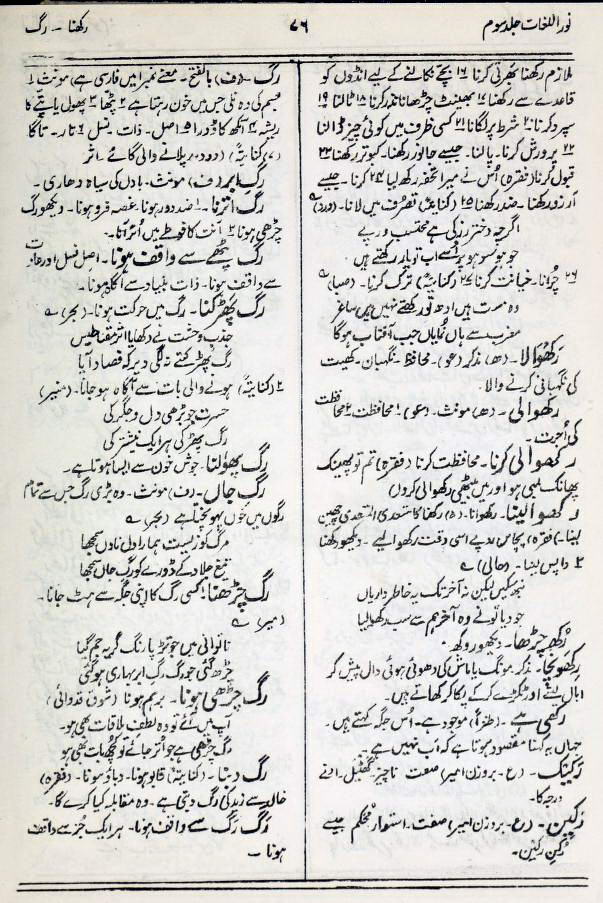 نور اللغات جلد سوم
۷۶
رکھنا - رگ
ملازم رکھنا بھرتی کرنا ۱۶ بچّے نکالنے کے لیے انڈوں کو
قاعدے سے رکھنا ۱۷ بھینٹ چڑھانا نذر کرنا ۱۸ ٹالنا ۱۹
سپرد کرنا ۲۰ شرط پر لگانا ۲۱ کسی ظرف میں کوئی چیز ڈالنا
۲۲ پرورش کرنا - پالنا - جیسے جانور رکھنا - کبوتر رکھنا ۲۳
قبول کرنا (فقرہ) اُس نے میرا تحفہ رکھ لیا ۲۴ کرنا - جیسے
آرزو رکھنا - ضد رکھنا ۲۵ (کنایۃً) تصرّف میں لانا - (درد)
اگرچہ دختر رز کی ہے محتسب در پے
جو ہو سو ہو پر اُسے اب تو یار رکھتے ہیں
۲۶ چُرانا - خیانت کرنا ۲۷ (کنایۃً) ترک کرنا - (صبا)
وہ مست ہیں ادھر تو رکھتے نہیں ہیں ساغر
مغرب سے ہاں نمایاں جب آفتاب ہوگا
رَکھْوالا - (ھ) مذکر (عو) - محافظ - نگہبان - کھیت
کی نگہبانی کرنے والا -
رکھوالی - (ھ) مونث - (عو) ۱ محافظت ۲ محافظت
کی اُجرت -
رکھوالی کرنا - محافظت کرنا (فقرہ) تم تو پھینک
پھانک لمبی ہو اور میں بیٹھی رکھوالی کروں
رکھوا لینا - رکھوانا - (ہ) رکھنا کا متعدی المتعدی چھین
لینا - (فقرہ) پچاس روپے اسی وقت رکھوا لیے - دیکھو رکھنا
۲ واپس لینا - (حالی)
نبھ سکیں لیکن نہ آخر تک یہ خاطر داریاں
جو دیا تو نے وہ آخر ہم سے سب رکھوا لیا
رُکھ چڑھا - دیکھو روکھ -
رِکھَونچا - مذکر - مونگ یا ماش کی دھوئی ہوئی دال پیس کر
ابال لیتے اور ٹکڑے کر کے پکا کر کھاتے ہیں -
رکھی ہے - (طنزاً) موجود ہے - اُس جگہ کہتے ہیں -
جہاں یہ کہنا مقصود ہوتا ہے کہ اب نہیں ہے -
رَکِیک - (ع - بروزن امیر) صفت - ناچیز - گھٹیل - ادنے
درجہ کا -
رَکین - (ع - بروزن امیر) صفت - استوار - محکم جیسے
رُکنِ رکین -
رگ - (ف) بالفتح - معنے نمبر ۱ میں فارسی ہے) مونث ۱
جسم کی وہ نلی جس میں خون رہتا ہے ۲ پٹھا ۳ پھول یا پتّے کا
ریشہ ۴ آنکھ کا ڈورا ۵ اصل - ذات - نسل ۶ تار - تاگا
(۷) (کنایۃً)
رگِ ابر (ف) مونث - بادل کی سیاہ دھاری -
رگ اترنا - ۱ ضد دور ہونا - غصہ فرو ہونا - دیکھو رگ
چڑھی ہونا ۲ آنت کا فوطے میں اُتر آنا -
رگ پٹھے سے واقف ہونا - اصل نسل اور عادت
سے واقف ہونا - ذات بنیاد سے آگاہ ہونا -
رگ پھڑکنا - رگ میں حرکت ہونا - (بحر)
جذبِ وحشت نے دکھایا اثرِ مقناطیس
رگ پھڑکتے نہ لگی دیر کہ فصّاد آیا
۲ (کنایۃً) ہونے والی بات سے آگاہ ہو جانا - (منیر)
حسرت جو بڑھی دل و جگر کی
رگ پھڑکی ہر ایک نیشتر کی
رگ پھولنا - جوش خون سے ایسا ہوتا ہے -
رگِ جاں - (ف) مونث - وہ بڑی رگ جس سے تمام
رگوں میں خون پہونچتا ہے (بحر)
مرگ کو زیست ہمارا دل ناداں سمجھا
تیغ جلاد کے ڈورے کو رگِ جاں سمجھا
رگ چڑھنا ۱ کسی رگ کا اپنی جگہ سے ہٹ جانا -
(میر)
ناتوانی میں جو تڑپا رنگ گریہ جم گیا
چڑھ گئی جو رگ رگِ ابر بہاری ہوگئی
رگ چڑھی ہونا - برہم ہونا (شوق قدوائی)
آپ میں آئے تو وہ لطف ملاقات بھی ہو -
رگ چڑھی ہے جو اُتر جائے تو کچھ بات بھی ہو
رگ دبنا - (کنایۃً) قابو ہونا - دباؤ ہونا - (فقرہ)
خالد سے زید کی رگ دبتی ہے - وہ مقابلہ کیا کرے گا -
رگ رگ سے واقف ہونا - ہر ایک جُز سے واقف
ہونا -